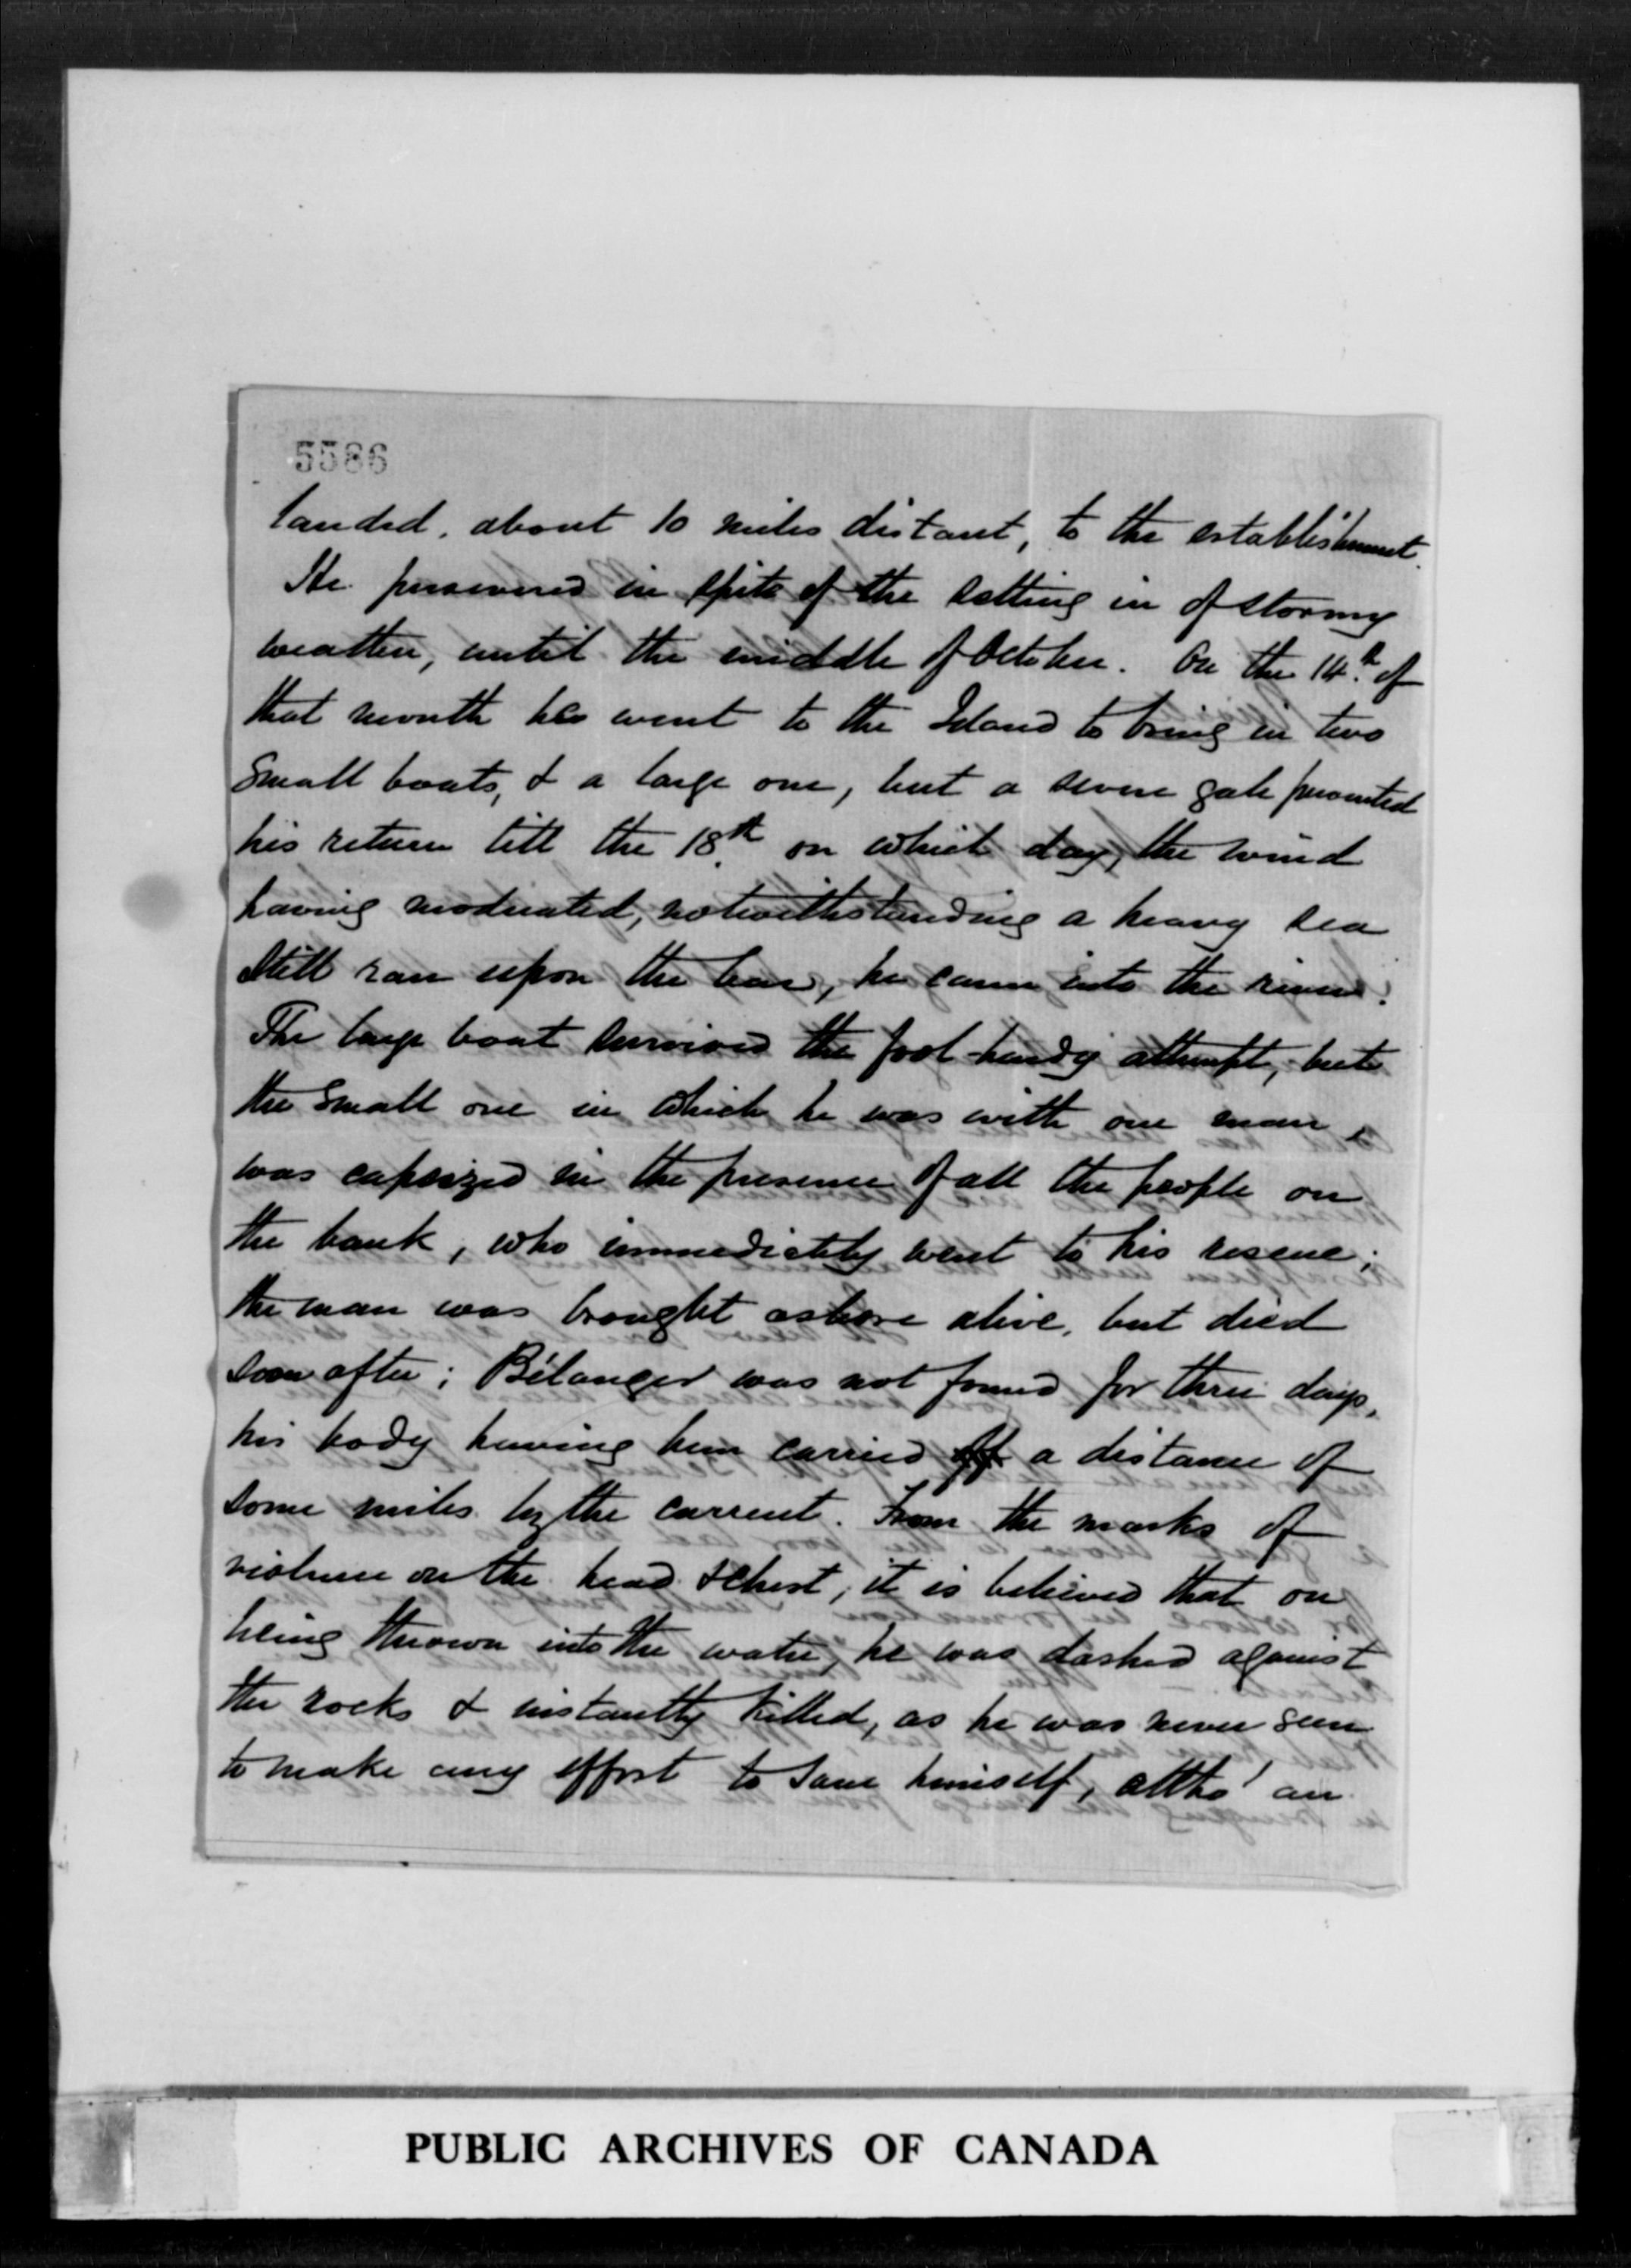 5586
landed, about 10 miles distant, to the establishment.
He persevered in spite of the setting in of stormy
weather, until the middle of October. On the 14th of
that month he went to the Island to bring in two
small boats, & a large one, but a severe gale prevented
his return till the 18th on which day, the wind
having moderated, notwithstanding a heavy sea
still ran upon the bar, he came into the river.
The large boat survived the fool-hardy attempt, but
the small one in which he was with one man,
was capsized in the presence of all the people on
the bank, who immediately went to his rescue;
the man was brought ashore alive, but died
soon after; Bélanger was not found for three days,
his body having been carried off a distance of
some miles by the current. From the marks of
violence on the head & chest, it is believed that on
being thrown into the water, he was dashed against
the rocks & instantly killed, as he was never seen
to make any effort to save himself, altho' an
PUBLIC ARCHIVES OF CANADA